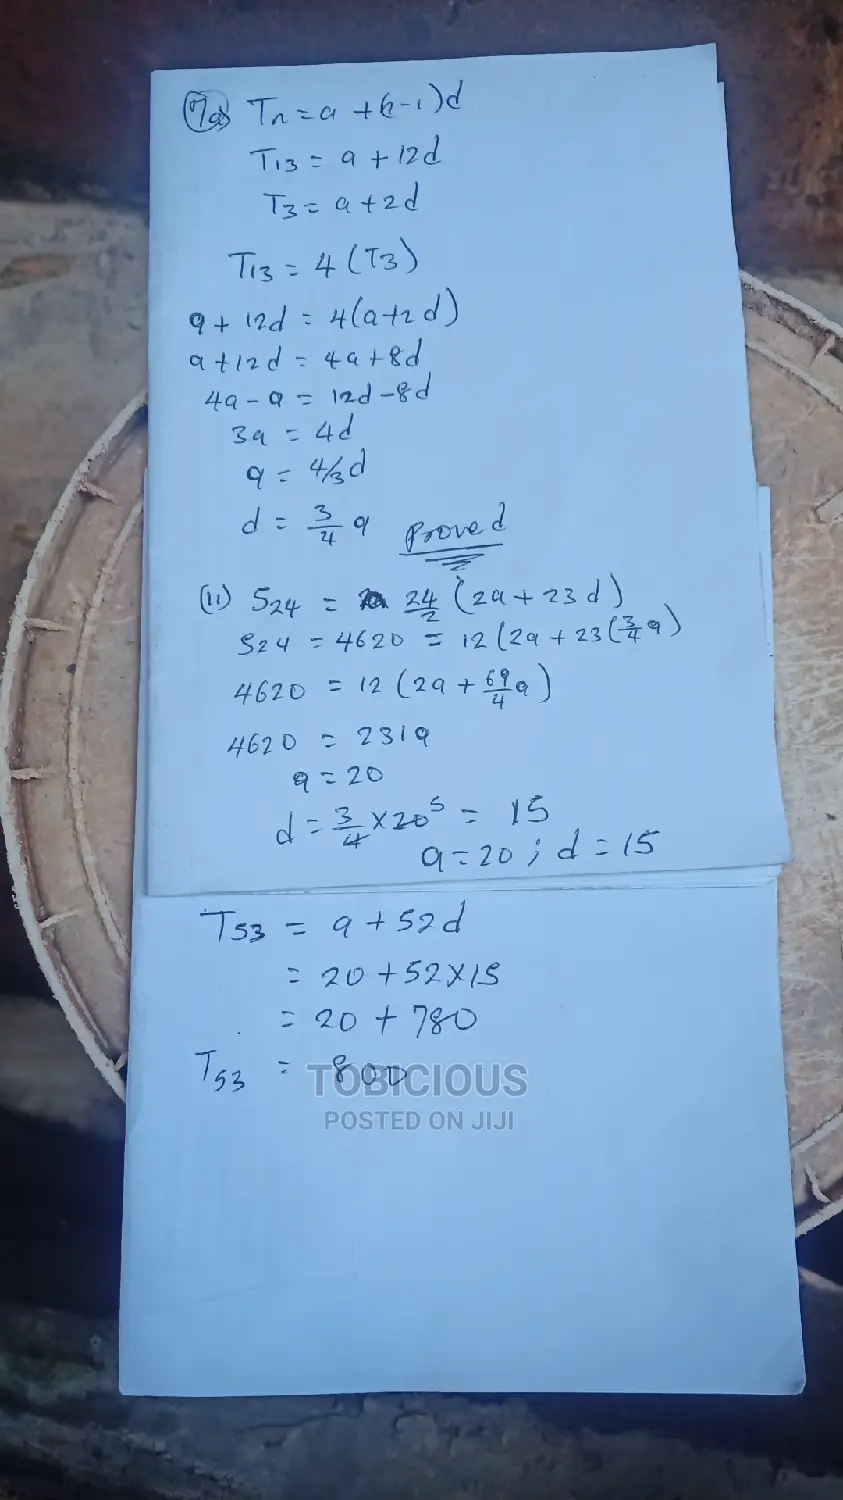 7a) Tn = a + (n-1)d
T13 = a + 12d
T3 = a + 2d
T13 = 4 (T3)
a + 12d = 4(a+2d)
a + 12d = 4a + 8d
4a - a = 12d - 8d
3a = 4d
a = 4/3 d
d = 3/4 a Proved
(ii) S24 = 24/2 (2a + 23d)
S24 = 4620 = 12 (2a + 23(3/4 a)
4620 = 12 (2a + 69/4 a)
4620 = 231a
a = 20
d = 3/4 × 20 5 = 15
a = 20 ; d = 15
T53 = a + 52d
= 20 + 52 × 15
= 20 + 780
T53 = 800
TOBICIOUS
POSTED ON JIJI